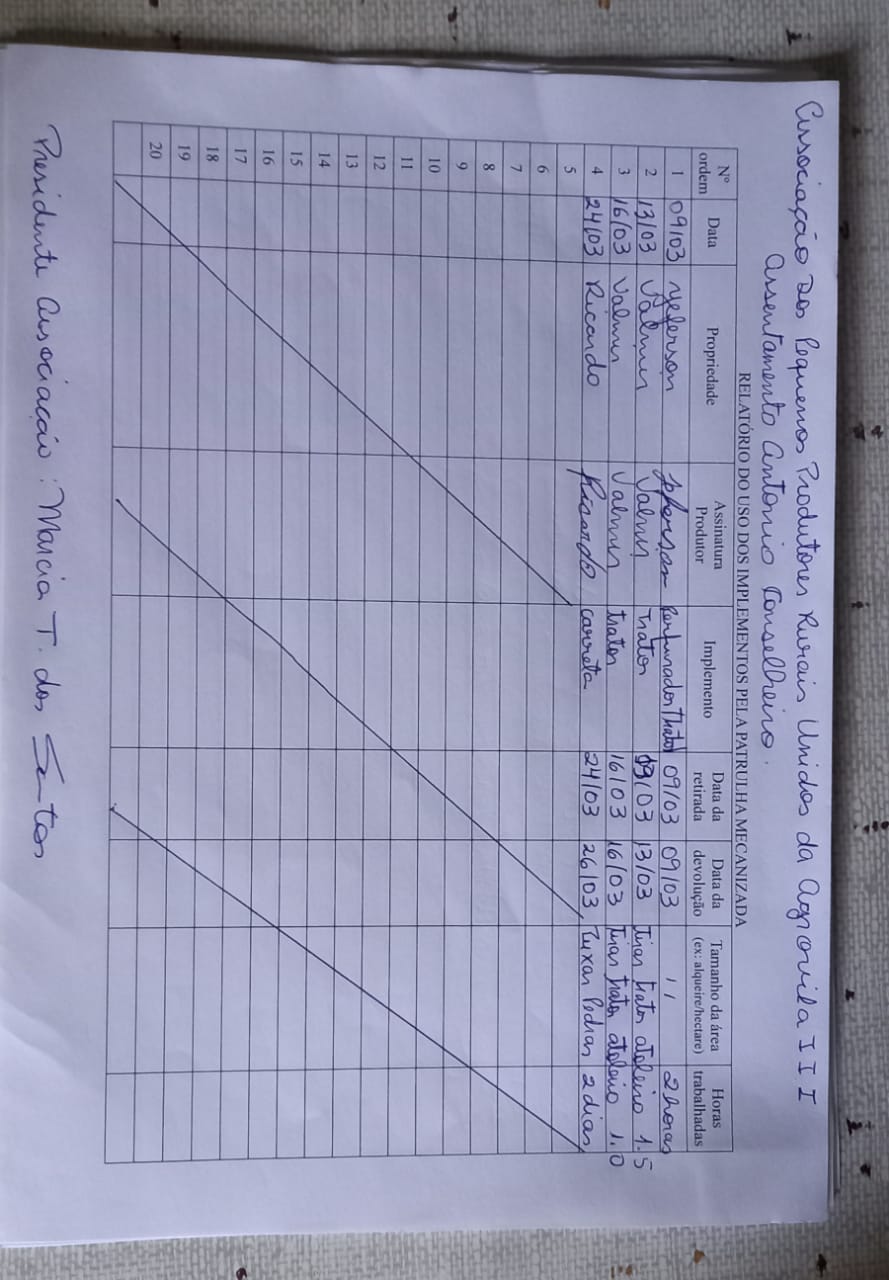 Associação dos Pequenos Produtores Rurais Unidos da Agrovila III
Assentamento Antonio Conselheiro.
RELATÓRIO DO USO DOS IMPLEMENTOS PELA PATRULHA MECANIZADA
Nº ordem Data Propriedade Assinatura Produtor Implemento Data da retirada Data da devolução Tamanho da área (ex: alqueire/hectare) Horas trabalhadas
1 09/03 Yeferson Perfurador trator 09/03 09/03 11 2 horas
2 13/03 Valmir Valmir trator 13/03 tirar trator atoleiro 1.5
3 16/03 Valmir Valmir trator 16/03 16/03 tirar trator atoleiro 1.0
4 24/03 Ricardo Ricardo carreta 24/03 26/03 Puxar Pedras 2 dias
5
6
7
8
9
10
11
12
13
14
15
16
17
18
19
20
Presidente Associação: Marcia T. dos Santos